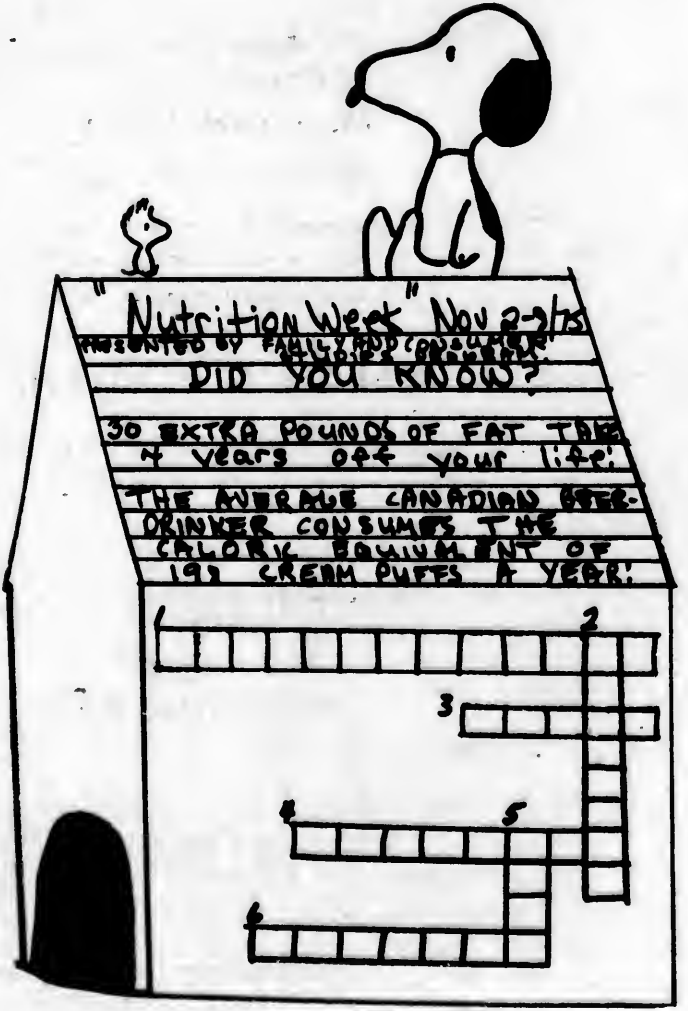 "Nutrition Week" Nov 2-9/75
PRESENTED BY FAMILY AND CONSUMER
STUDIES PROGRAM.
DID YOU KNOW?
30 EXTRA POUNDS OF FAT TAKE
4 years off your life!
THE AVERAGE CANADIAN BEER-
DRINKER CONSUMES THE
CALORIC EQUIVALENT OF
198 CREAM PUFFS A YEAR!
1 2
3
4 5
6